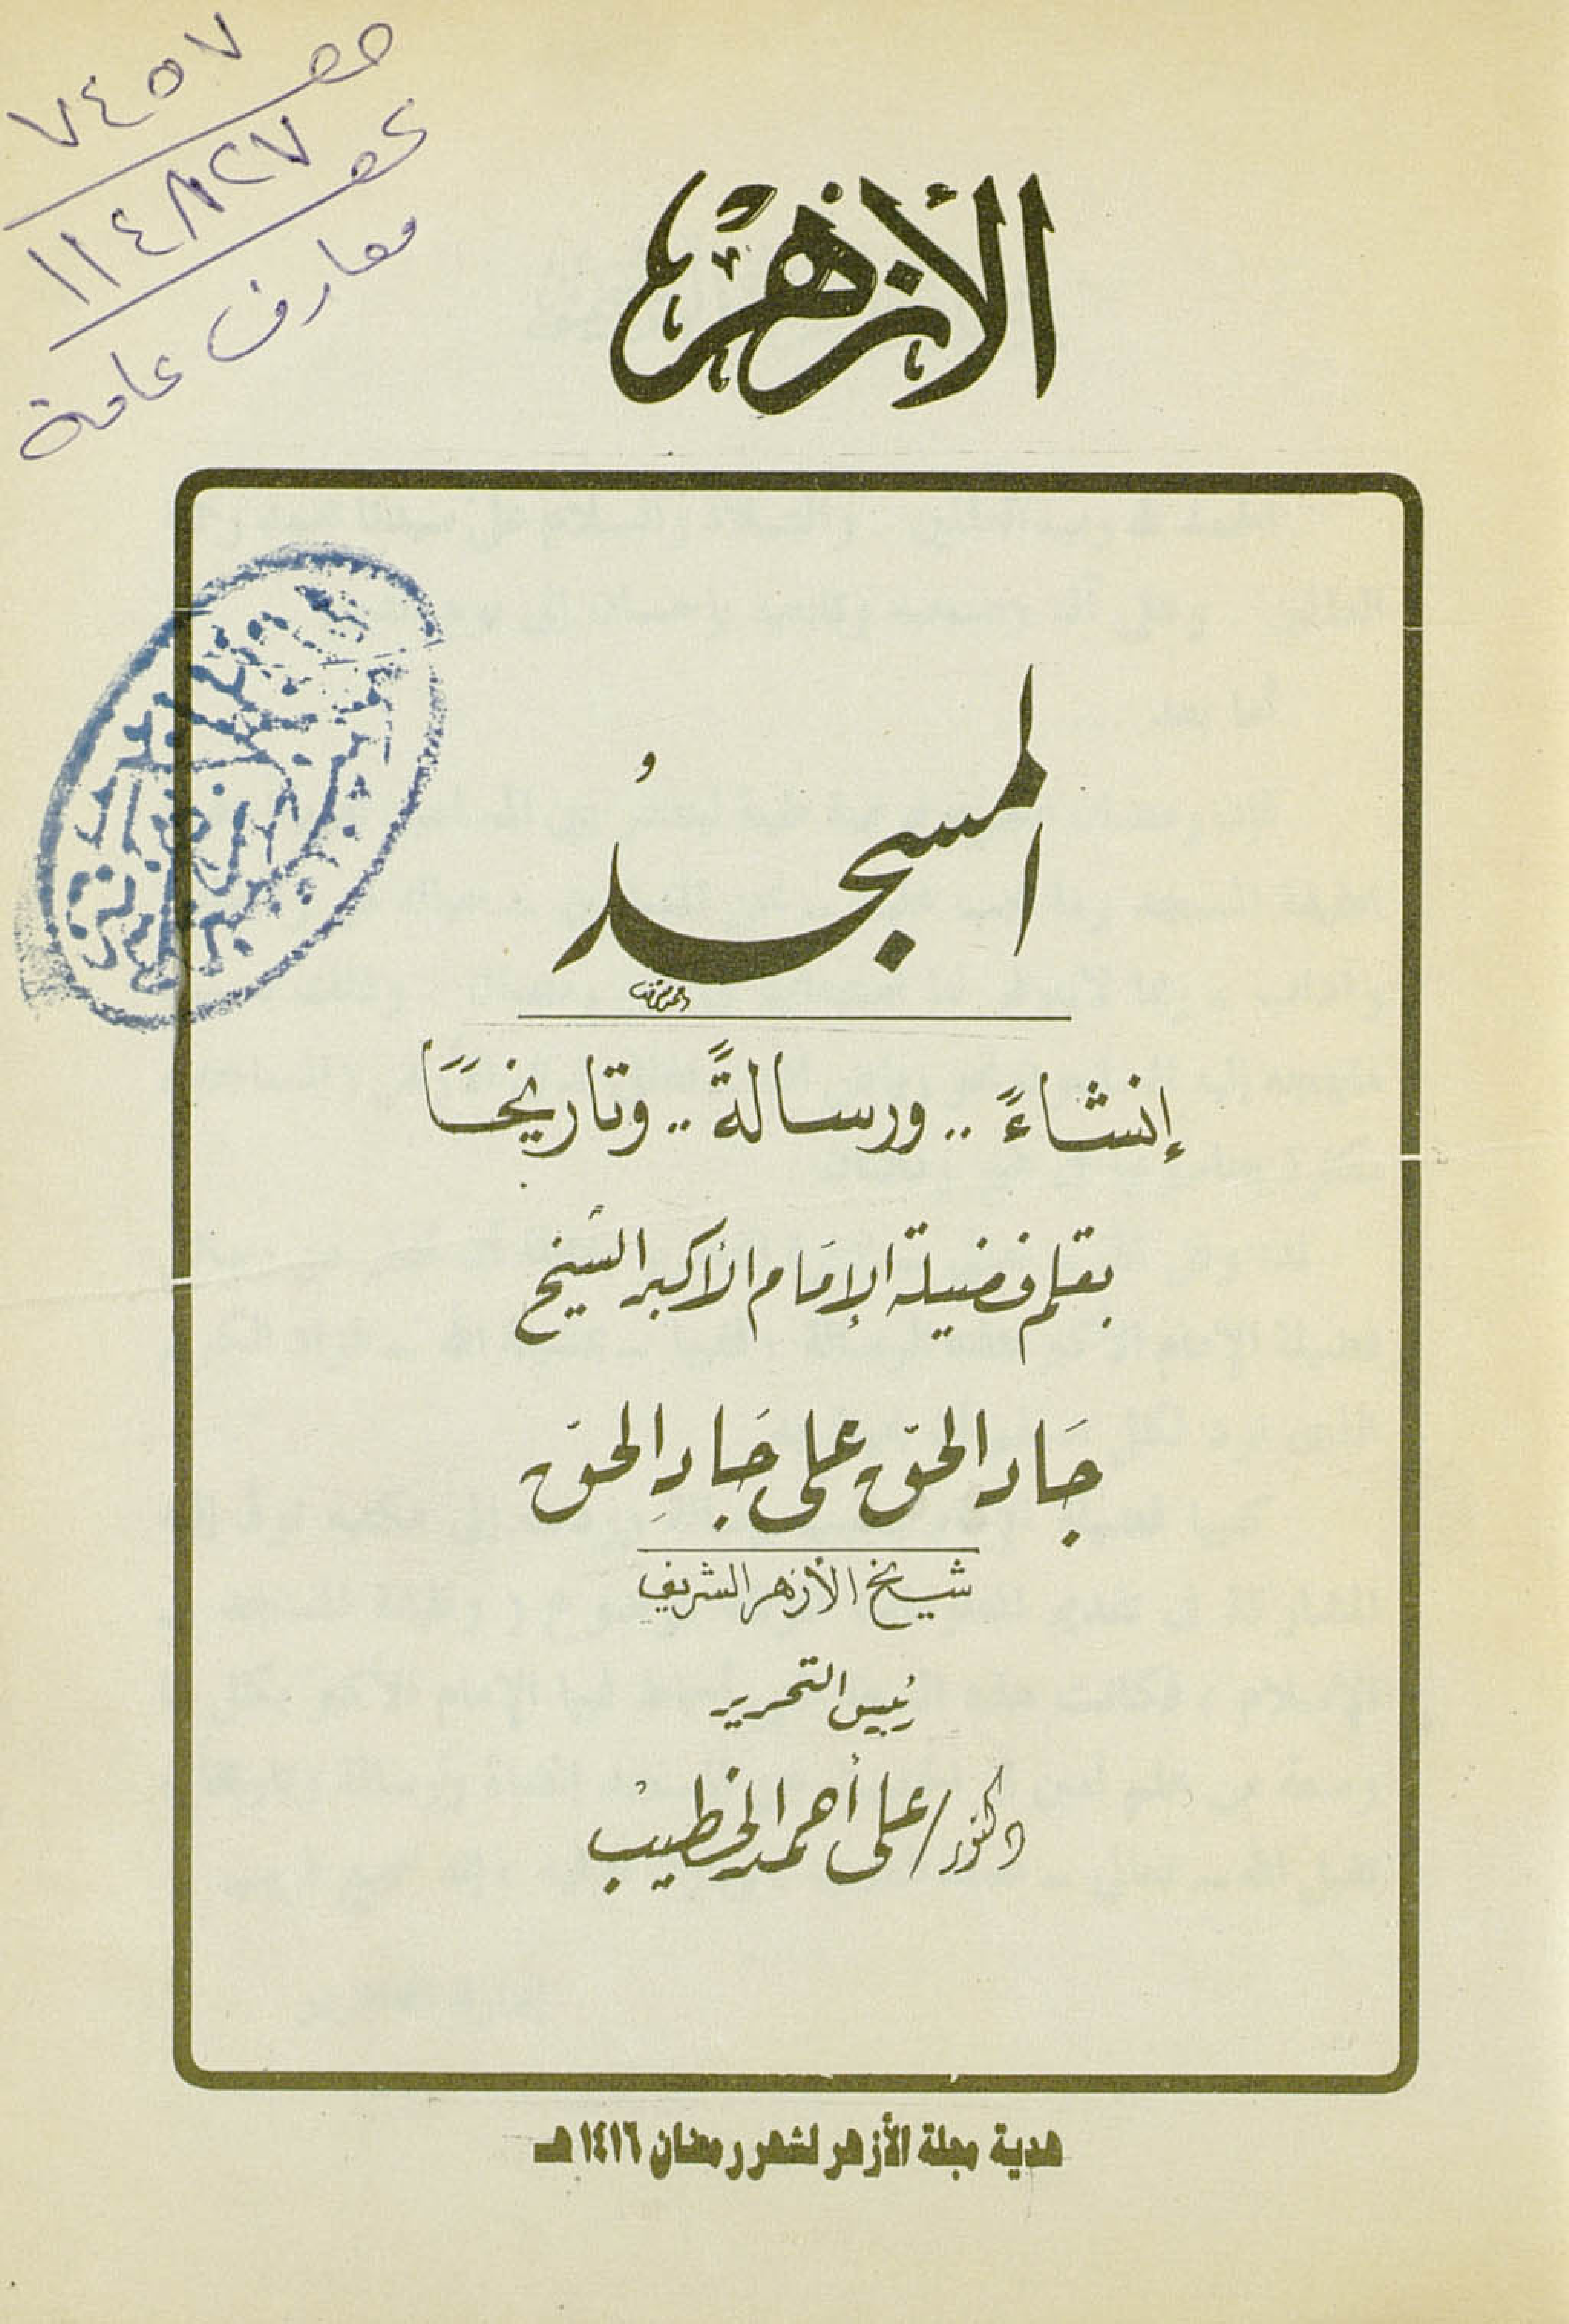 ٧٤٥٧
معارف عامة
الأزهر
المسجدُ
إنشاءً .. ورسالةً .. وتاريخًا
بقلم فضيلة الإمَام الأكبر الشيخ
جَاد الحقّ على جَادِ الحقّ
شيخ الأزهر الشريف
رئيس التحرير
دكتور / على أحمد الخطيب
هدية مجلة الأزهر لشهر رمضان ١٤١٦ هـ